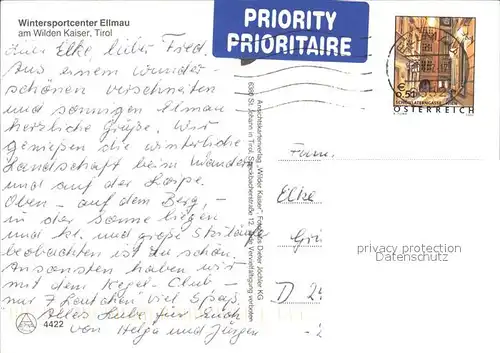 Wintersportcenter Ellmau
am Wilden Kaiser, Tirol
Liebe Elke, lieber Fred.
Aus einem wunder-
schönen verschneiten
und sonnigen Ellmau
herzliche Grüße. Wir
genießen die winterliche
Landschaft beim Wandern
und auf der Loipe.
Oben - auf dem Berg, -
in der Sonne liegen
und kl. und große Skiläufer
beobachten ist zu schön.
Ansonsten haben wir
mit dem Kegel-Club -
nur 7 Leutchen viel Spaß.
Alles Liebe für Euch
von Helga und Jürgen
4422
PRIORITY
PRIORITAIRE
€ 0,51
SCHÖNLATERNGASSE, WIEN
ÖSTERREICH
Ansichtskartenverlag „Wilder Kaiser", Fotograf Dieter Jöchler KG
6380 St. Johann in Tirol, Speckbacherstraße 12, Jede Vervielfältigung verboten
Fam.
Elke
D 2
privacy protection
AnsichtskartenVersand.com